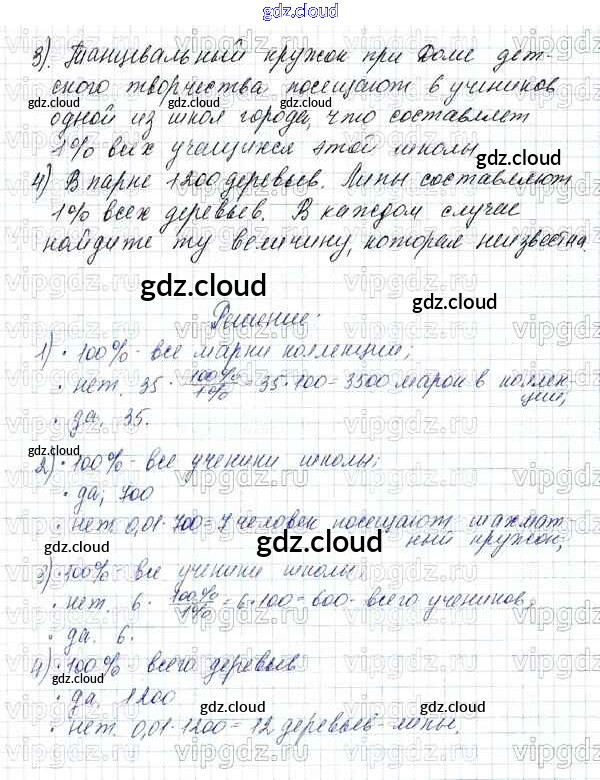 gdz.cloud
3). Танцевальный кружок при Доме дет-
ского творчества посещают 6 учеников
одной из школ города, что составляет
1% всех учащихся этой школы.
4) В парке 1200 деревьев. Липы составляют
1% всех деревьев. В каждом случае
найдите ту величину, которая неизвестна.
Решение:
1) · 100% - все марки коллекции;
· нет. 35 · 100%/1% = 35 · 100 = 3500 марок в коллек-
ции;
· да, 35.
2) · 100% - все ученики школы;
· да; 700
· нет 0,01 · 700 = 7 человек посещают шахмат-
ный кружок;
3) · 100% - все ученики школы;
· нет. 6 · 100%/1% = 6 · 100 = 600 - всего учеников;
· да. 6.
4) · 100% всего деревьев
· да, 1200
· нет. 0,01 · 1200 = 12 деревьев - липы.